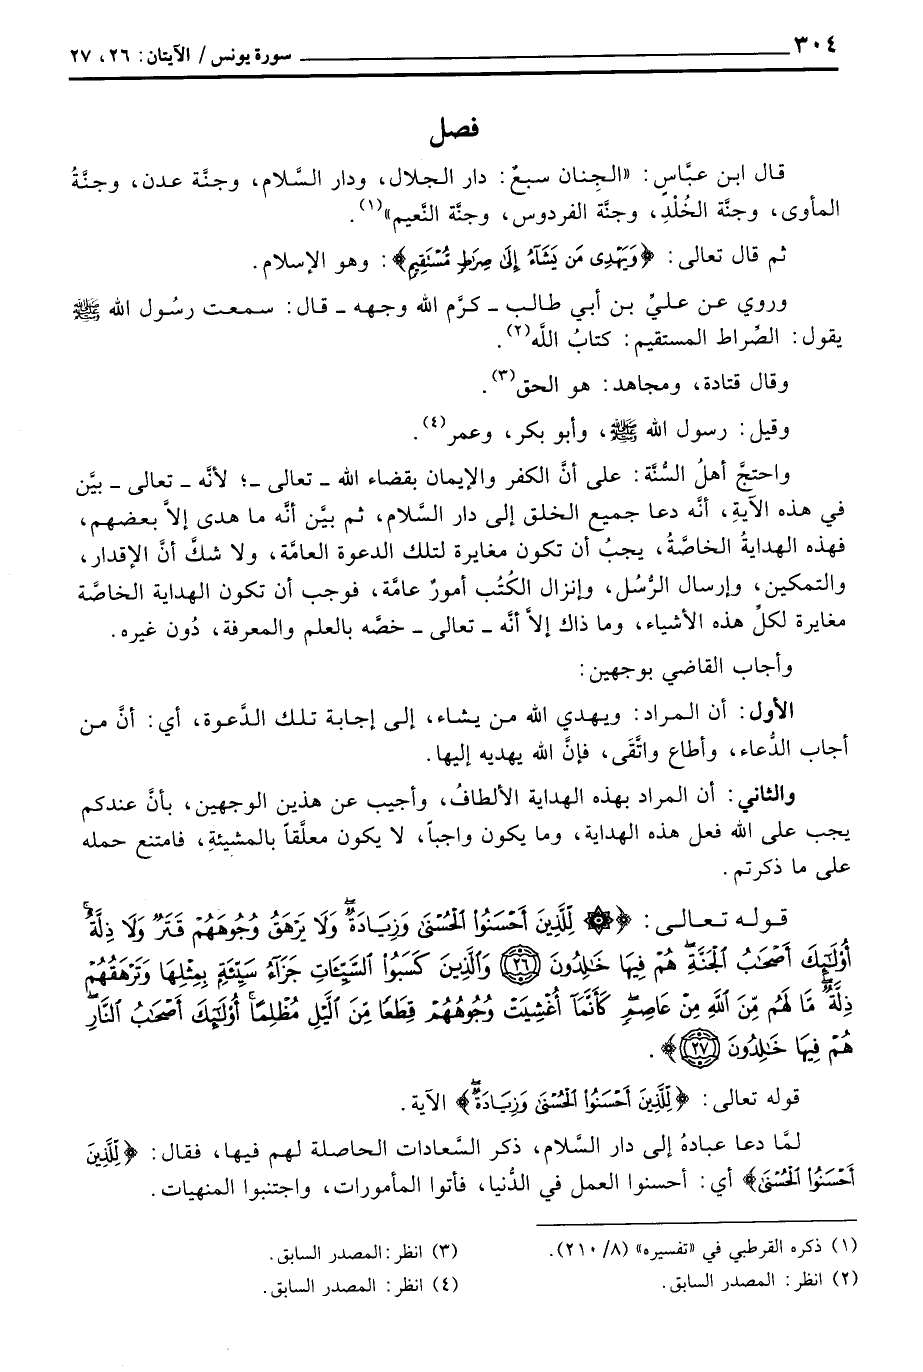 ٣٠٤ سورة يونس / الآيتان: ٢٦، ٢٧
فصل
قال ابن عبَّاسٍ: «الجِنان سبعٌ: دار الجلال، ودار السَّلام، وجنَّة عدن، وجنَّةُ
المأوى، وجنَّة الخُلْدِ، وجنَّة الفردوس، وجنَّة النَّعيم»(١).
ثم قال تعالى: ﴿وَيَهْدِى مَن يَشَآءُ إِلَىٰ صِرَٰطٍ مُّسْتَقِيمٍ﴾: وهو الإسلام.
وروي عن عليِّ بن أبي طالب ـ كرَّم الله وجهه ـ قال: سمعت رسُول الله ﷺ
يقول: الصِّراط المستقيم: كتابُ اللَّه(٢).
وقال قتادة، ومجاهد: هو الحق(٣).
وقيل: رسول الله ﷺ، وأبو بكر، وعمر(٤).
واحتجَّ أهلُ السُّنَّة: على أنَّ الكفر والإيمان بقضاء الله ـ تعالى ـ؛ لأنَّه ـ تعالى ـ بيَّن
في هذه الآيةِ، أنَّه دعا جميع الخلق إلى دار السَّلام، ثم بيَّن أنَّه ما هدى إلاَّ بعضهم،
فهذه الهدايةُ الخاصَّةُ، يجبُ أن تكون مغايرة لتلك الدعوة العامَّة، ولا شكَّ أنَّ الإقدار،
والتمكين، وإرسال الرُّسُل، وإنزال الكُتُب أمورٌ عامَّة، فوجب أن تكون الهداية الخاصَّة
مغايرة لكلِّ هذه الأشياء، وما ذاك إلاَّ أنَّه ـ تعالى ـ خصَّه بالعلم والمعرفة، دُون غيره.
وأجاب القاضي بوجهين:
الأول: أن المراد: ويهدي الله من يشاء، إلى إجابة تلك الدَّعوة، أي: أنَّ من
أجاب الدُّعاء، وأطاع واتَّقَى، فإنَّ الله يهديه إليها.
والثاني: أن المراد بهذه الهداية الألطافُ، وأجيب عن هذين الوجهين، بأنَّ عندكم
يجب على الله فعل هذه الهداية، وما يكون واجباً، لا يكون معلَّقاً بالمشيئةِ، فامتنع حمله
على ما ذكرتم.
قوله تعالى: ﴿۞ لِّلَّذِينَ أَحْسَنُوا۟ ٱلْحُسْنَىٰ وَزِيَادَةٌ ۖ وَلَا يَرْهَقُ وُجُوهَهُمْ قَتَرٌ وَلَا ذِلَّةٌ ۚ
أُو۟لَٰٓئِكَ أَصْحَٰبُ ٱلْجَنَّةِ ۖ هُمْ فِيهَا خَٰلِدُونَ ﴿٢٦﴾ وَٱلَّذِينَ كَسَبُوا۟ ٱلسَّيِّـَٔاتِ جَزَآءُ سَيِّئَةٍۭ بِمِثْلِهَا وَتَرْهَقُهُمْ
ذِلَّةٌ ۖ مَّا لَهُم مِّنَ ٱللَّهِ مِنْ عَاصِمٍ ۖ كَأَنَّمَآ أُغْشِيَتْ وُجُوهُهُمْ قِطَعًا مِّنَ ٱلَّيْلِ مُظْلِمًا ۚ أُو۟لَٰٓئِكَ أَصْحَٰبُ ٱلنَّارِ ۖ
هُمْ فِيهَا خَٰلِدُونَ ﴿٢٧﴾﴾.
قوله تعالى: ﴿لِّلَّذِينَ أَحْسَنُوا۟ ٱلْحُسْنَىٰ وَزِيَادَةٌ ۖ﴾ الآية.
لمَّا دعا عبادهُ إلى دار السَّلام، ذكر السَّعادات الحاصلة لهم فيها، فقال: ﴿لِّلَّذِينَ
أَحْسَنُوا۟ ٱلْحُسْنَىٰ﴾ أي: أحسنوا العمل في الدُّنيا، فأتوا المأمورات، واجتنبوا المنهيات.
(١) ذكره القرطبي في «تفسيره» (٨/ ٢١٠).
(٢) انظر: المصدر السابق.
(٣) انظر: المصدر السابق.
(٤) انظر: المصدر السابق.